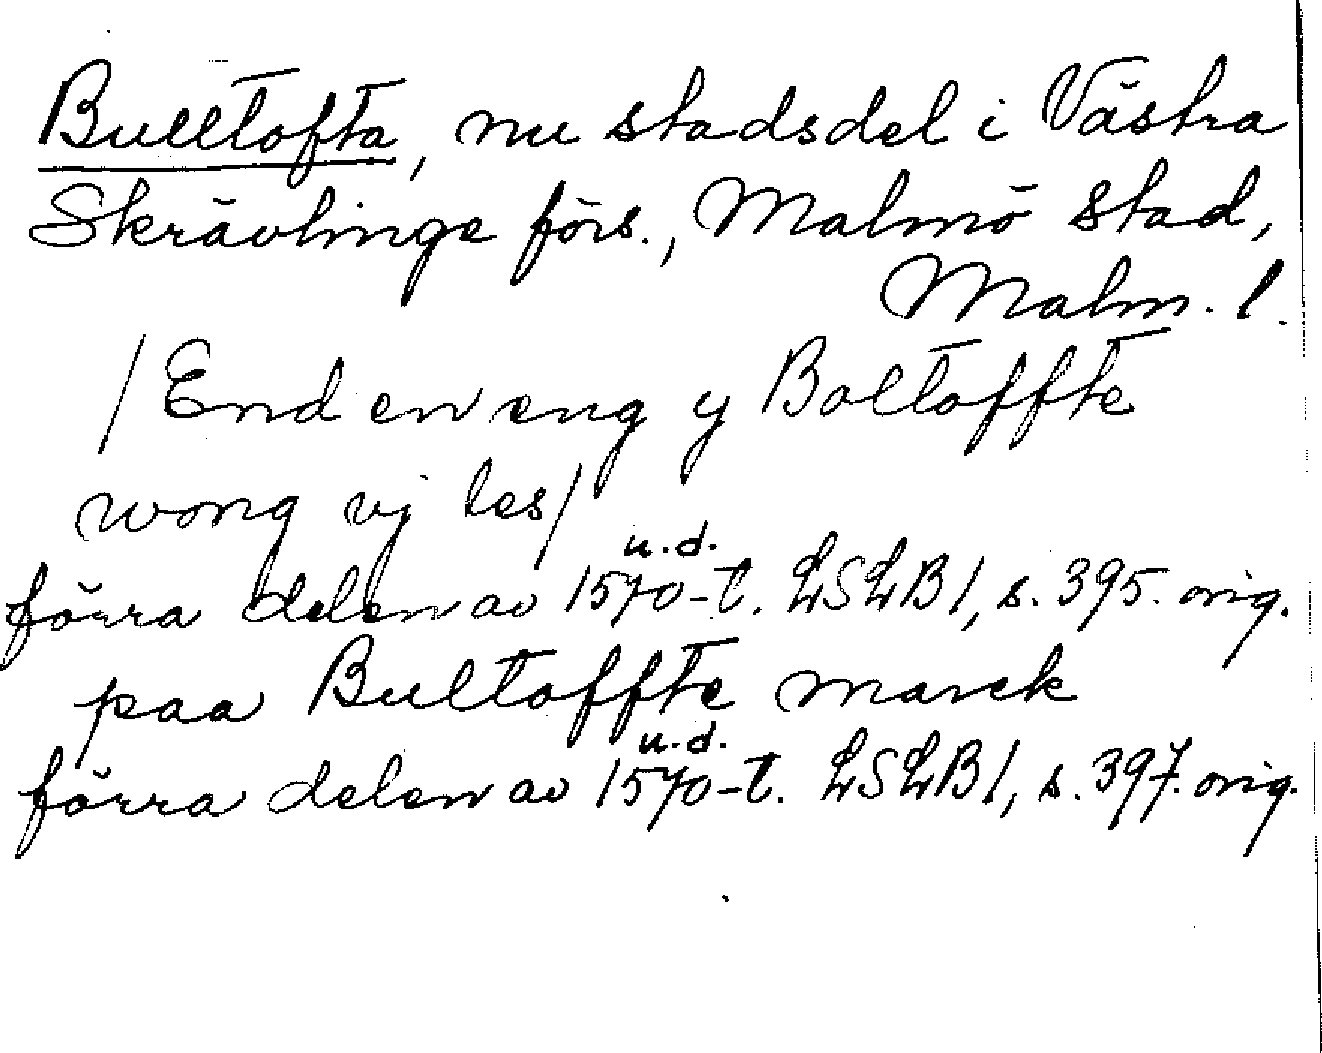 Bulltofta, nu stadsdel i Västra
Skrävlinge förs., Malmö stad,
Malm. l.
/End en eng y Boltoffte
wong vj les/
u.d.
förra delen av 1570-t. LSLB1, s. 395. orig.
paa Bultoffte marck
u.d.
förra delen av 1570-t. LSLB1, s. 397. orig.